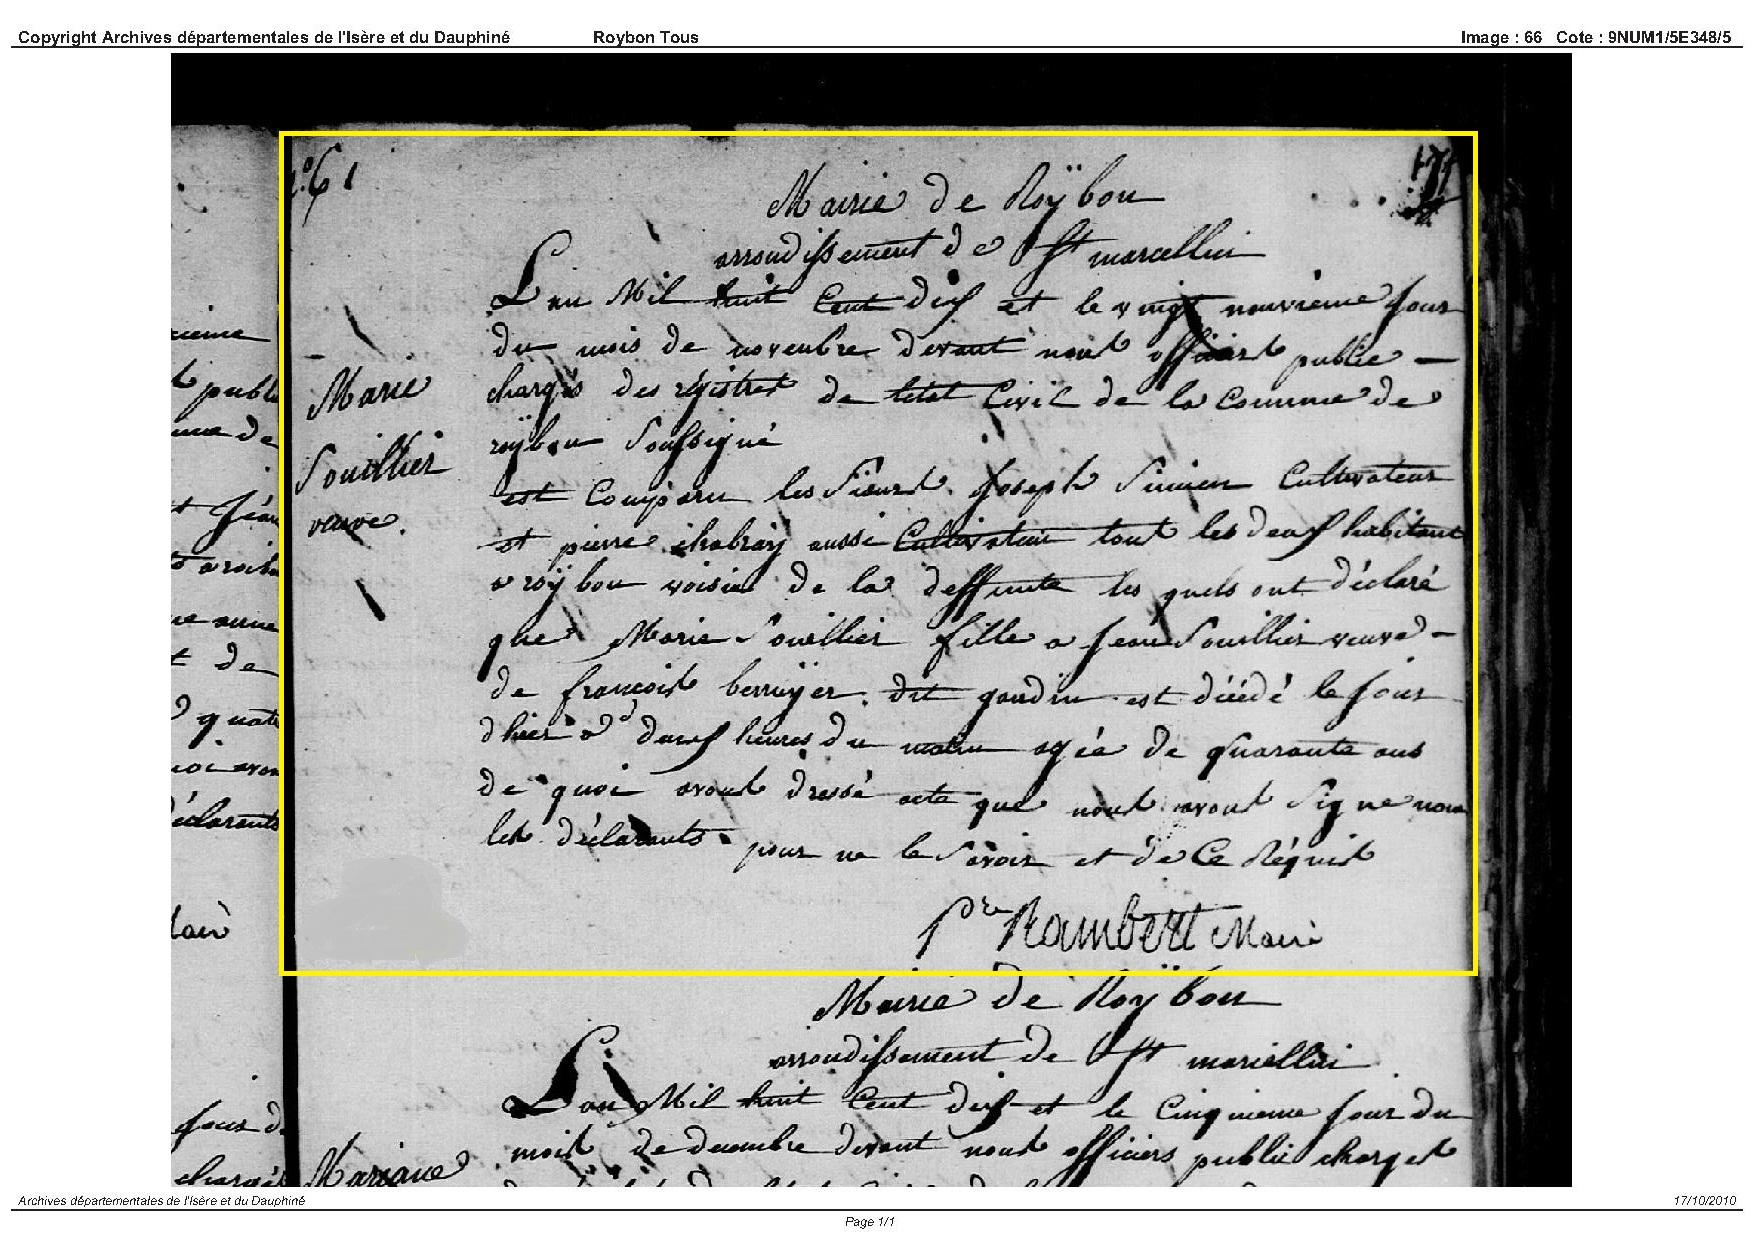 Copyright Archives départementales de l'Isère et du Dauphiné Roybon Tous Image : 66 Cote : 9NUM1/5E348/5
n.° 61
Mairie de Roÿbon
arrondissement de St marcellin
Marie
Souillier
veuve.
L'an Mil huit Cent dix et le vingt neuvieme jour
du mois de novembre devant nous officiers public
chargés des régistres de l'état Civil de la Commune de
roÿbon Soussigné
est Comparu les Sieurs Joseph Simien Cultivateur
et pierre chabray aussi Cultivateur tous les deux habitant
a roÿbon voisin de la deffunte les quels ont déclaré
que Marie Souillier fille a Jean Souillier veuve
de francois berruyer dit gaudin est décédé le jour
dhier a deux heures du matin agée de quarante ans
de quoi avons dressé acte que nous avons Signé non
les déclarants pour ne le Savoir et de Ce Réquis
Pre Rambert Maire
Mairie de Roÿbon
arrondissement de St marcellin
L'an Mil huit Cent dix et le Cinquieme jour du
mois de decembre devant nous officiers public chargés
Mariane
cieme
publ
de
Jean
de
quatr
déclarants
jour d
chargés
Archives départementales de l'Isère et du Dauphiné 17/10/2010
Page 1/1